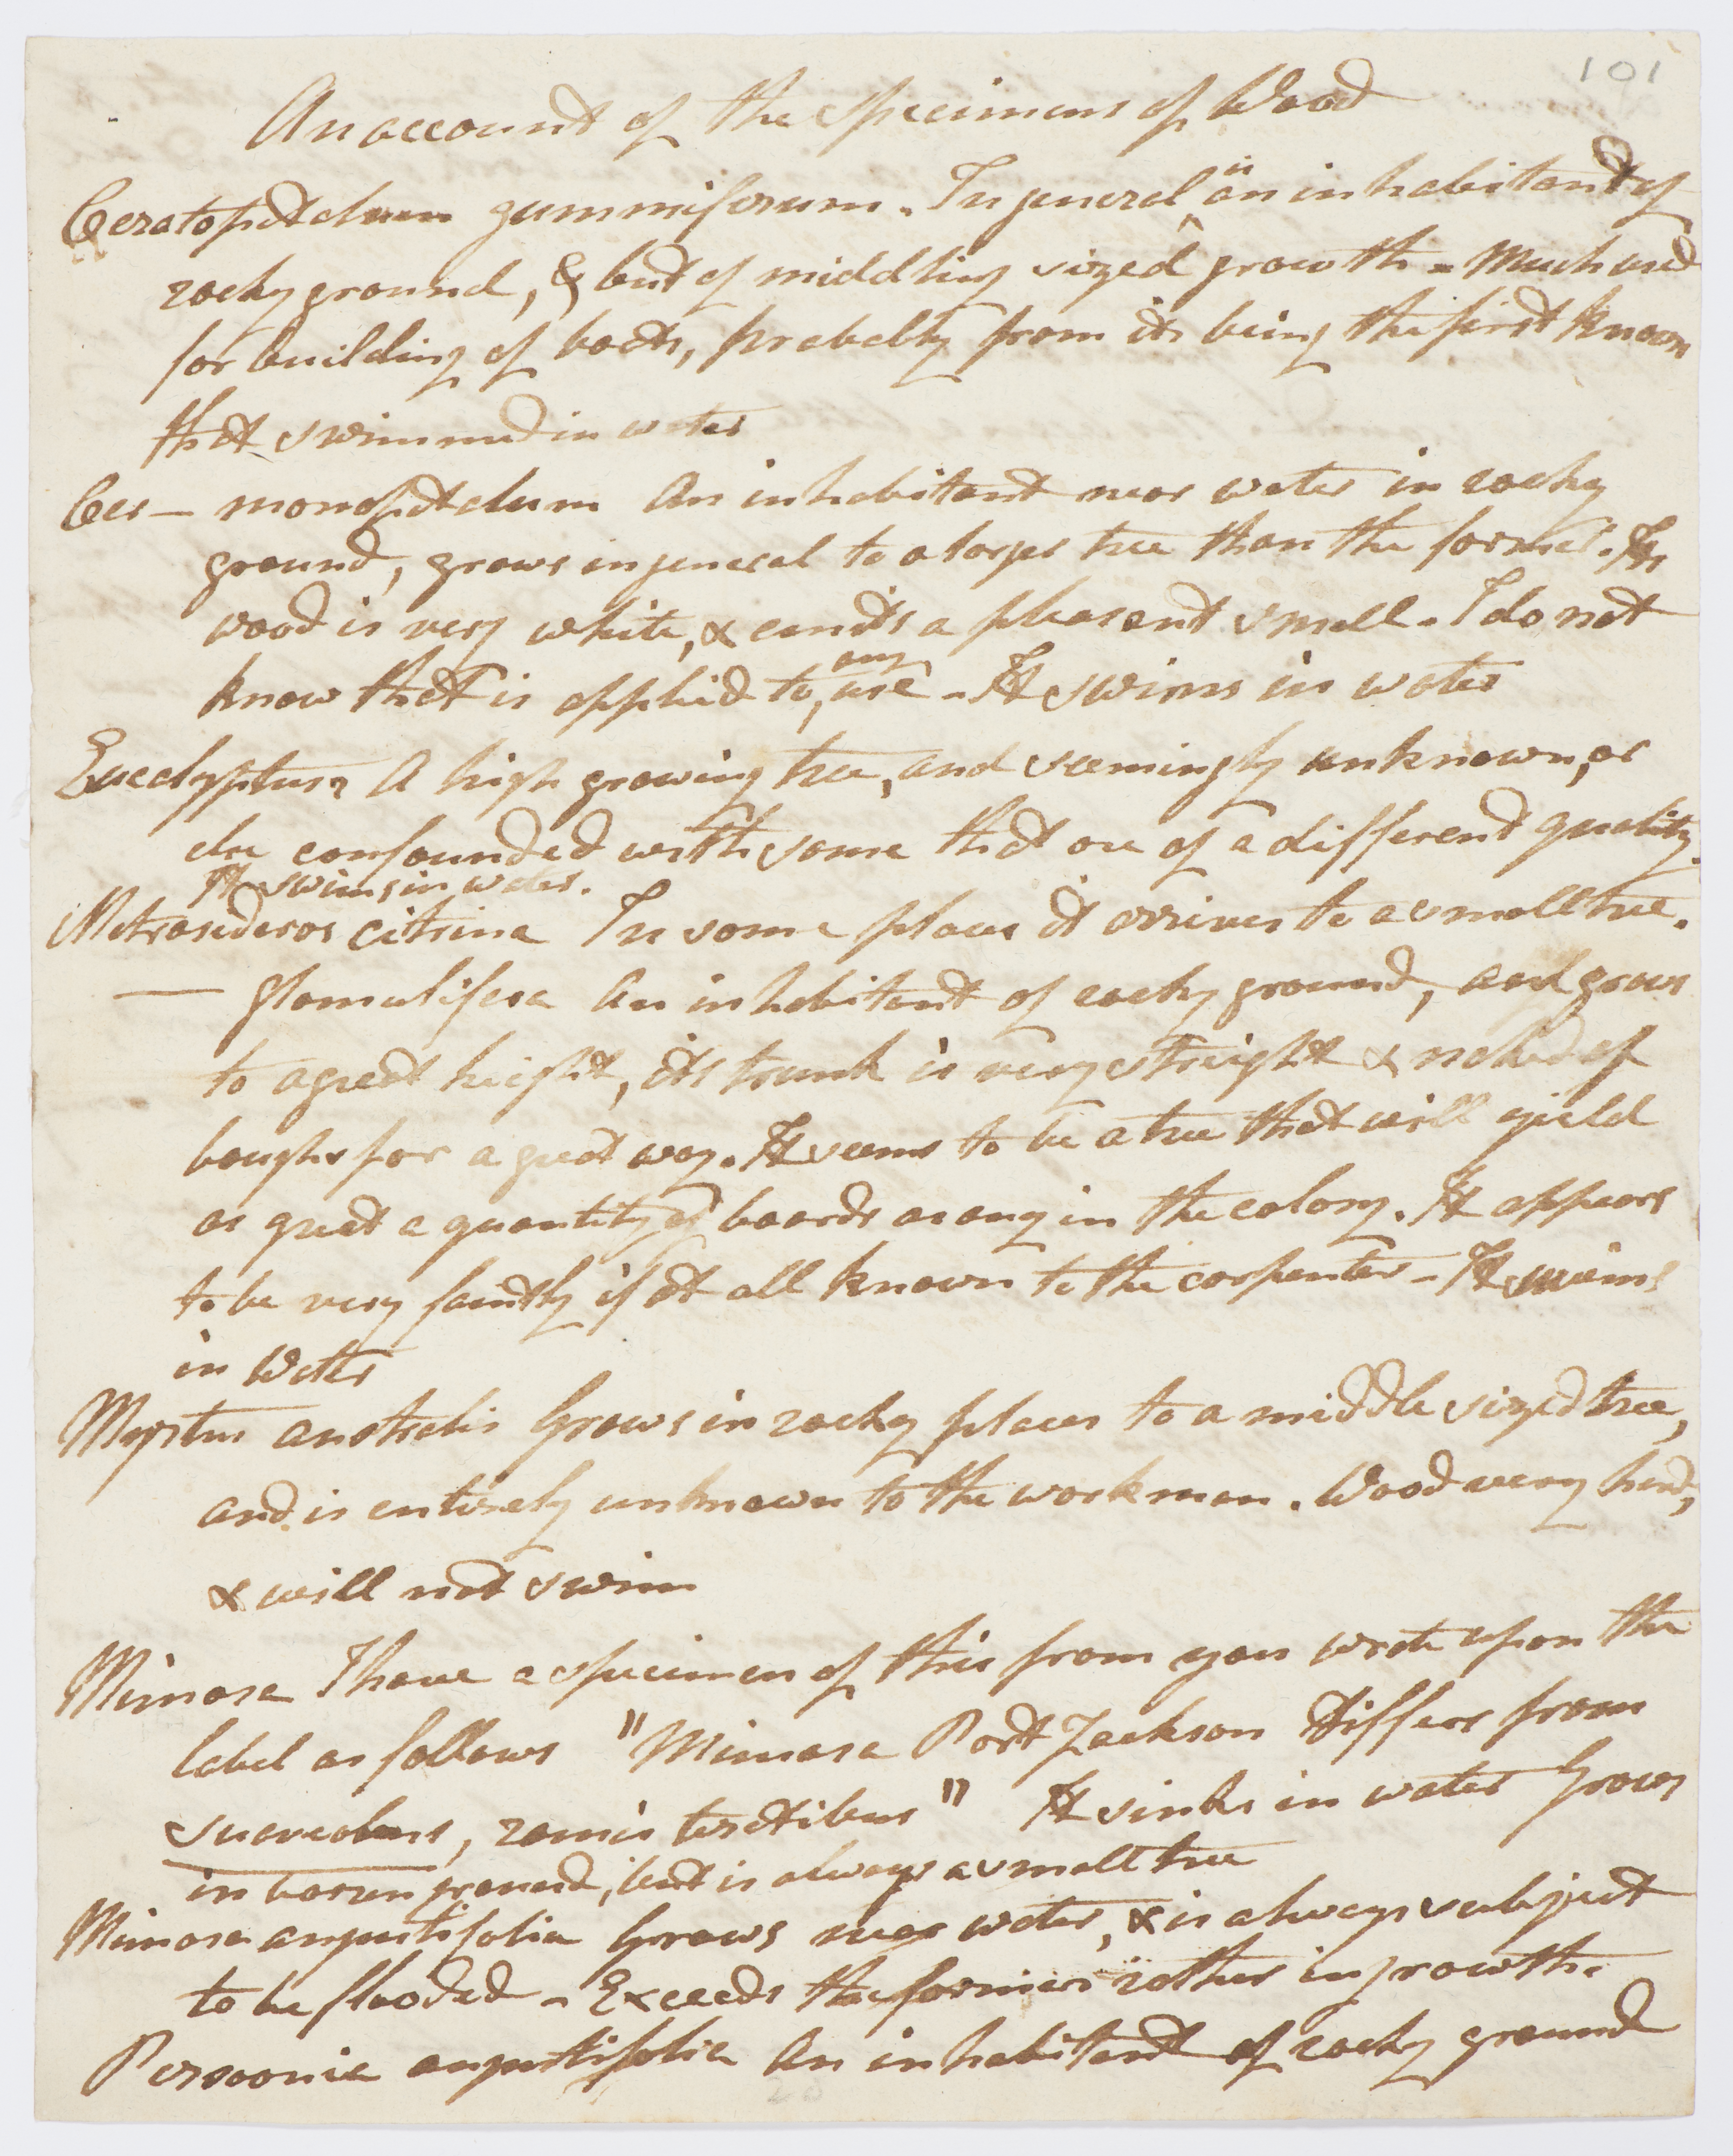 101
An account of the specimens of Wood
Ceratopetalum gummiferum. In general is an inhabitant of
rocky ground, & but of middling sized growth - Much used
for building of boats, probably from its being the first known
that swimmed in water
Cer— monopetalum An inhabitant near water in rocky
ground, grows in general to a larger tree than the former. Its
wood is very white, & emits a pleasent smell. I do not
know that is applied to any use - It swims in water
Eucalyptus? A high growing tree, and seemingly unknown, or
else confounded with some that are of a different quality.
It swims in water.
Metrosideros citrina In some places it arrives to a small tree.
— glomulifera An inhabitant of rocky ground, and grows
to a great height, its trunk is very streight & naked of
boughs for a great way. It seems to be a tree that will yield
as great a quantity of boards as any in the colony. It appears
to be very faintly if at all known to the carpenter - It swims
in Water
Myrtus australis Grows in rocky places to a middle sized tree,
and is entirely unknown to the workman. Wood very hard,
& will not swim
Mimosa I have a specimen of this from you wrote upon the
label as follows "Mimosa Port Jackson Differs from
suaveolens, ramis teretibus" It sinks in water Grows
in barren ground, but is always a small tree
Mimosa angustifolia Grows near water, & is always subject
to be flooded - Exceeds the former rather in growth.
Persoonia angustifolia An inhabitant of rocky ground
20